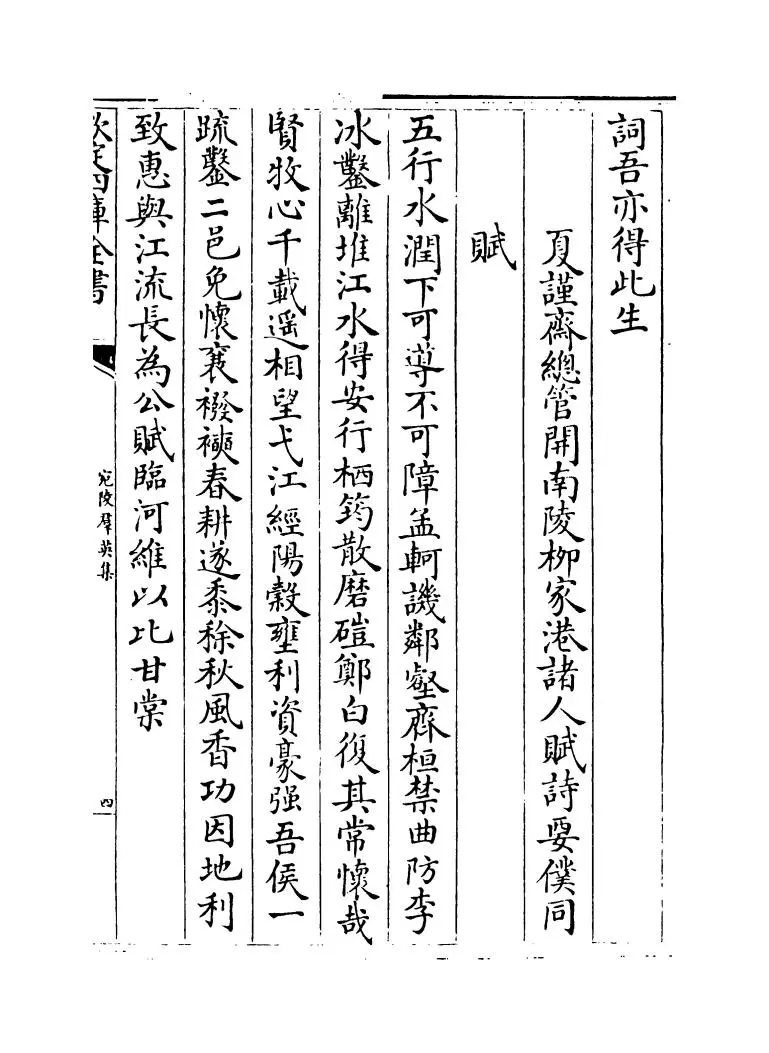 詞吾亦得此生
夏謹齋總管開南陵栁家港諸人賦詩要僕同
賦
五行水潤下可導不可障孟軻譏鄰壑齊桓禁曲防李
冰鑿離堆江水得安行栖筠散磨磑鄭白復其常懷哉
賢牧心千載遥相望弋江經陽穀壅利資豪强吾侯一
疏鑿二邑免懷襄襏襫春耕遂黍稌秋風香功因地利
致惠與江流長為公賦臨河維以比甘棠
欽定四庫全書
宛陵羣英集
四